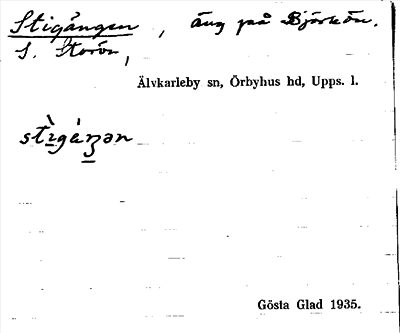 Stigången, äng på Björkön.
S. Storön,
Älvkarleby sn, Örbyhus hd, Upps. l.
stìgáŋən
Gösta Glad 1935.